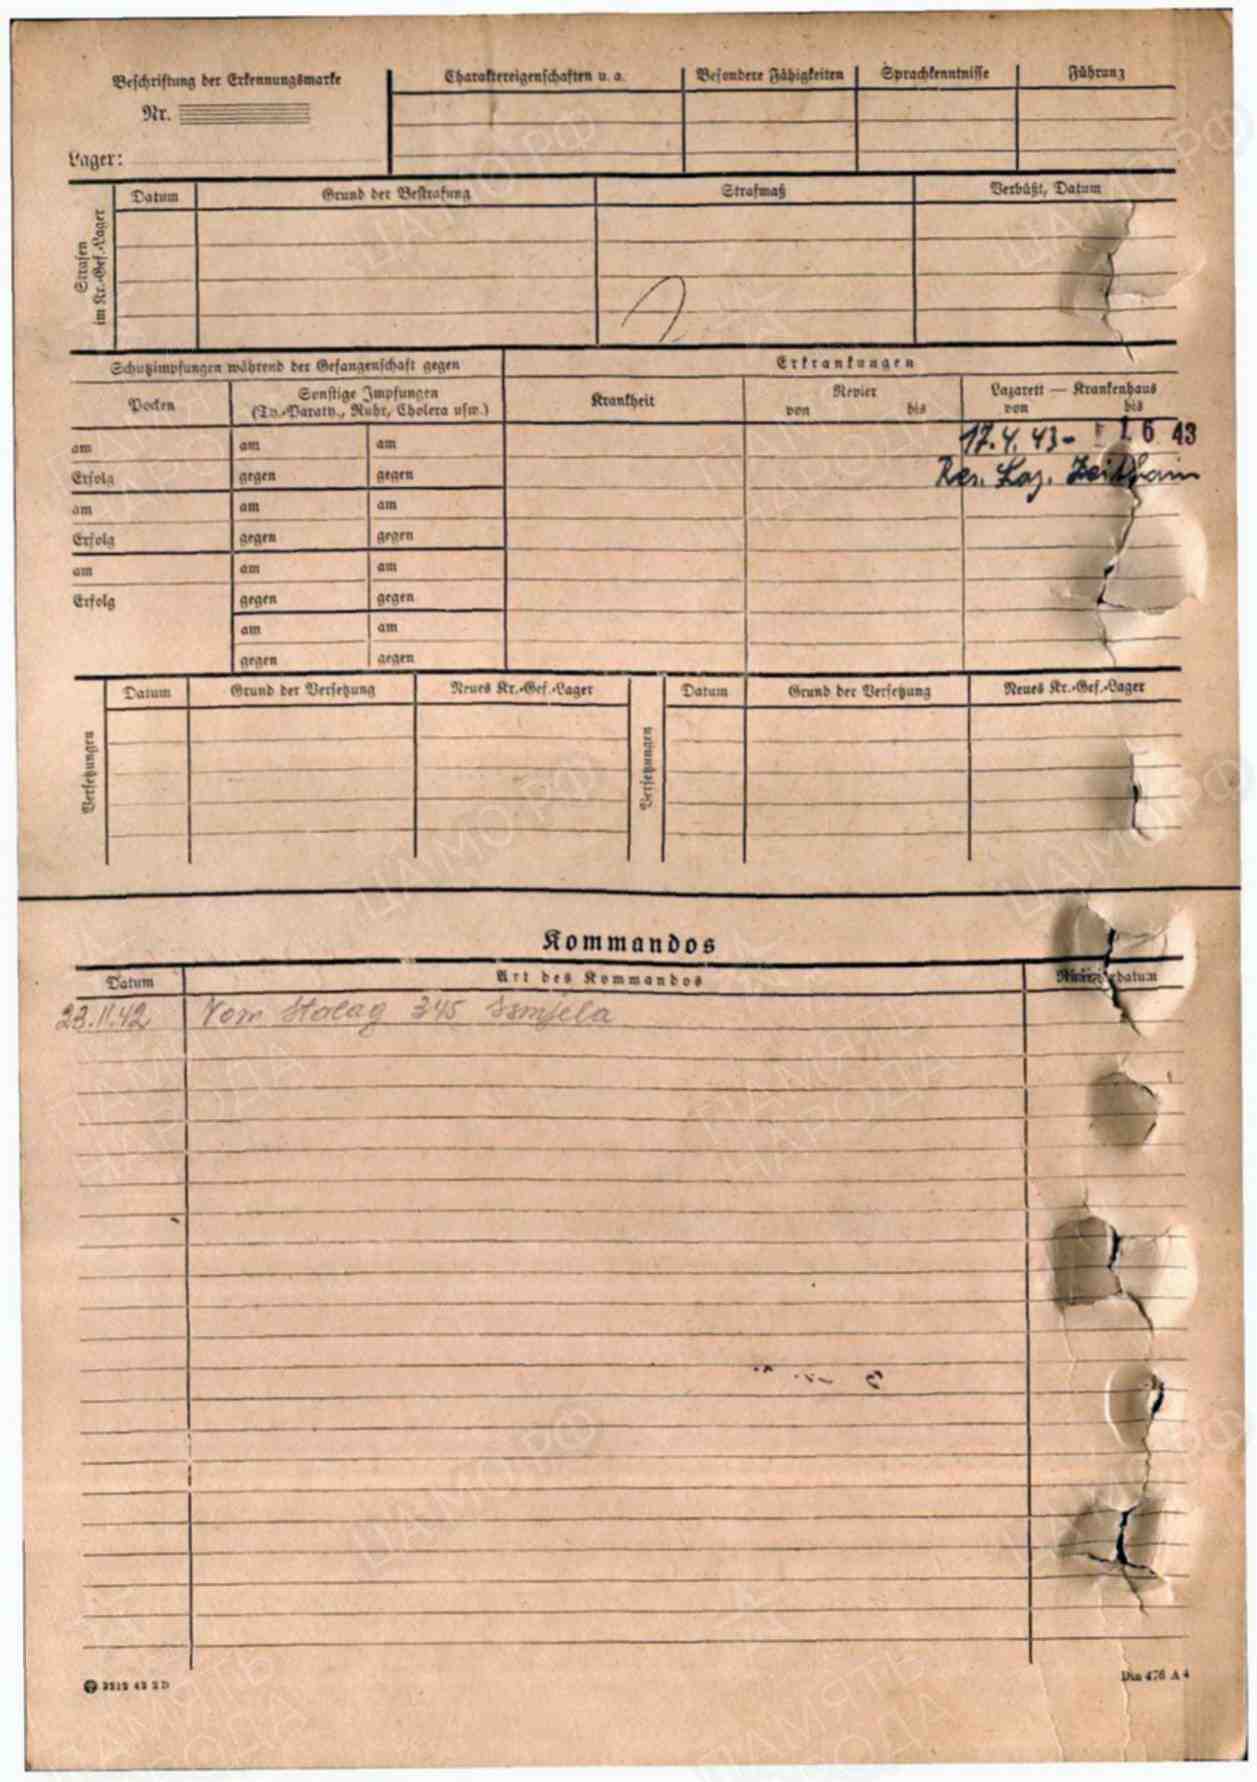 Beschriftung der Erkennungsmarke
Nr.
Lager:
Charaktereigenschaften u. a.
Besondere Fähigkeiten
Sprachkenntnisse
Führung
Strafen
im Kr.-Gef.-Lager
Datum
Grund der Bestrafung
Strafmaß
Verbüßt, Datum
Schutzimpfungen während der Gefangenschaft gegen
Erkrankungen
Pocken
Sonstige Impfungen
(Ty.-Paraty., Ruhr, Cholera usw.)
Krankheit
Revier
von bis
Lazarett — Krankenhaus
von bis
am am am
17.4.43- 1. 6 43
Erfolg gegen gegen
Res. Laz. Zeithain
am am am
Erfolg gegen gegen
am am am
Erfolg gegen gegen
am am
gegen gegen
Versetzungen
Datum Grund der Versetzung Neues Kr.-Gef.-Lager
Versetzungen
Datum Grund der Versetzung Neues Kr.-Gef.-Lager
Kommandos
Datum Art des Kommandos
23.11.42 Vom Stalag 345 Ssmjela
3212 42 2 D
Din 476 A 4
ЦАМО.РФ
ПАМЯТЬ
НАРОДА